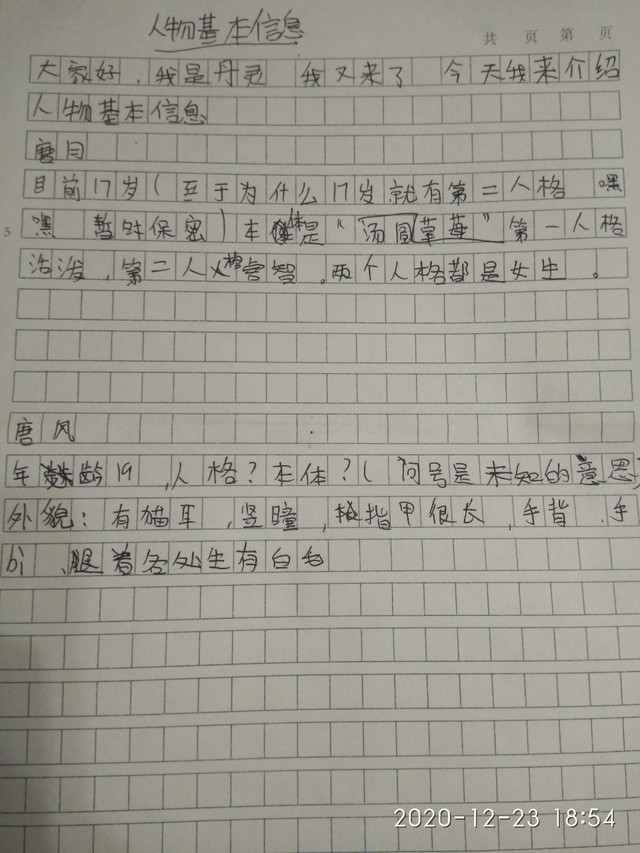 人物基本信息
共 页 第 页
大家好，我是丹灵 我又来了 今天我来介绍
人物基本信息
唐月
目前17岁（至于为什么17岁就有第二人格 嘿
5
嘿 暂时保密）本体是“汤圆草莓”第一人格
活泼，第二人格睿智。两个人格都是女生。
唐风
年龄19，人格？本体？（问号是未知的意思）
外貌：有猫耳，竖瞳，指甲很长，手背，手
bì，腿着各处生有白毛
2020-12-23 18:54